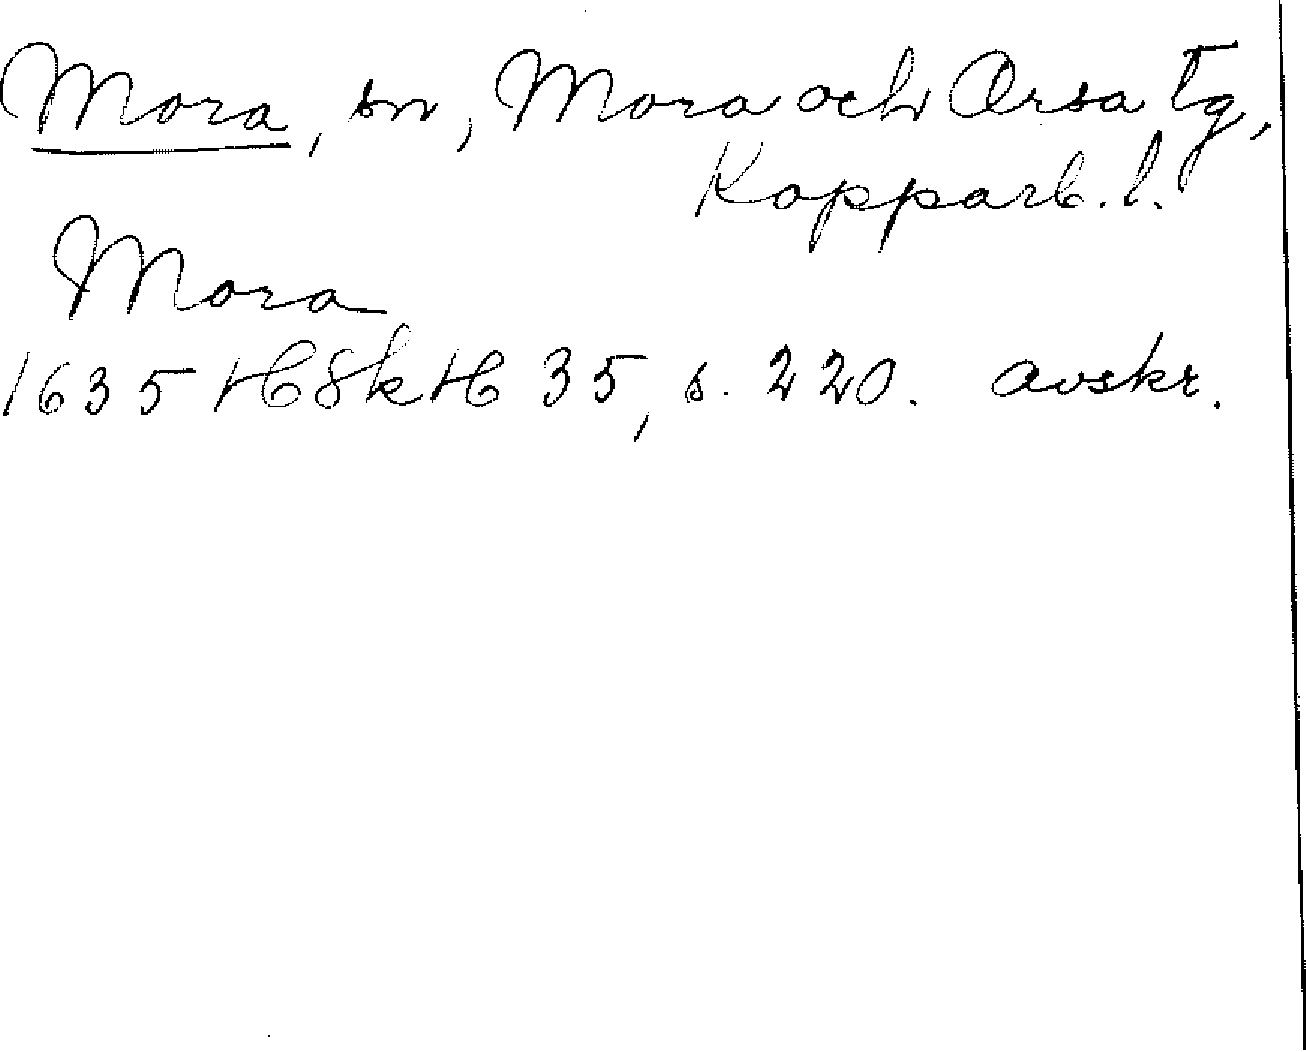 Mora, sn, Mora och Orsa tg,
Kopparb. l.
Mora
1635 HSkH 35, s. 220. avskr.